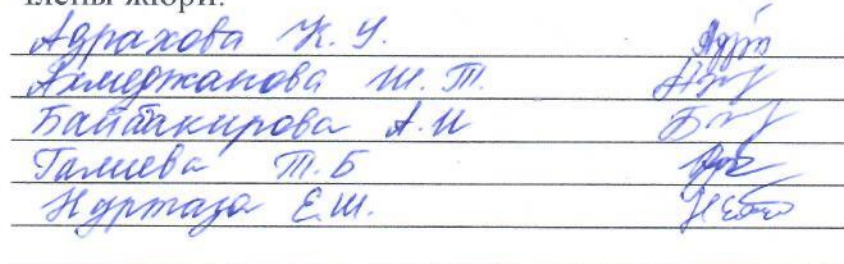 Члены жюри:
Адрахова К. У.
Ахмеджанова Ш. Т.
Байбакирова А. И
Галиева Т. Б
Нуртаза Е. Ш.